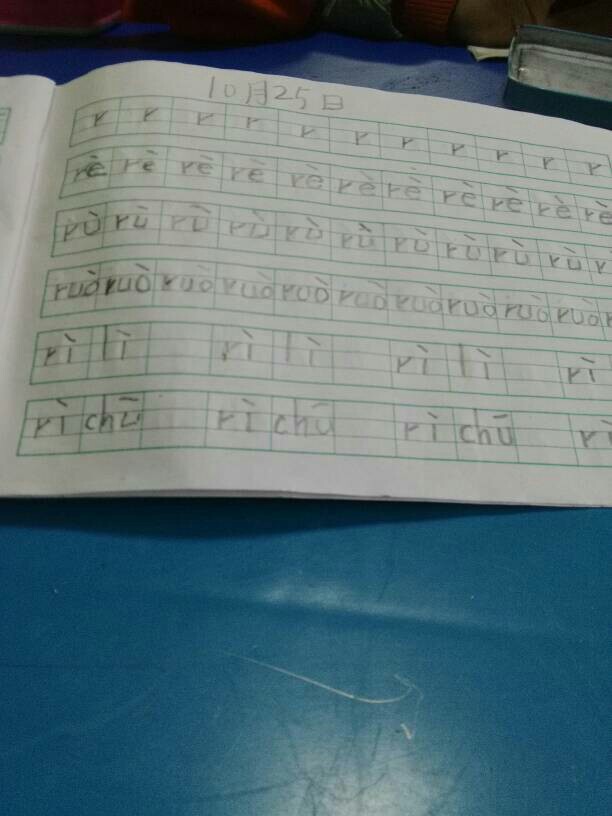 10月25日
r r r r r r r r r r r
rè rè rè rè rè rè rè rè rè rè rè
rù rù rù rù rù rù rù rù rù rù r
ruò ruò ruò ruò ruò ruò ruò ruò ruò ruò r
rì lì rì lì rì lì rì
rì chū rì chū rì chū rì